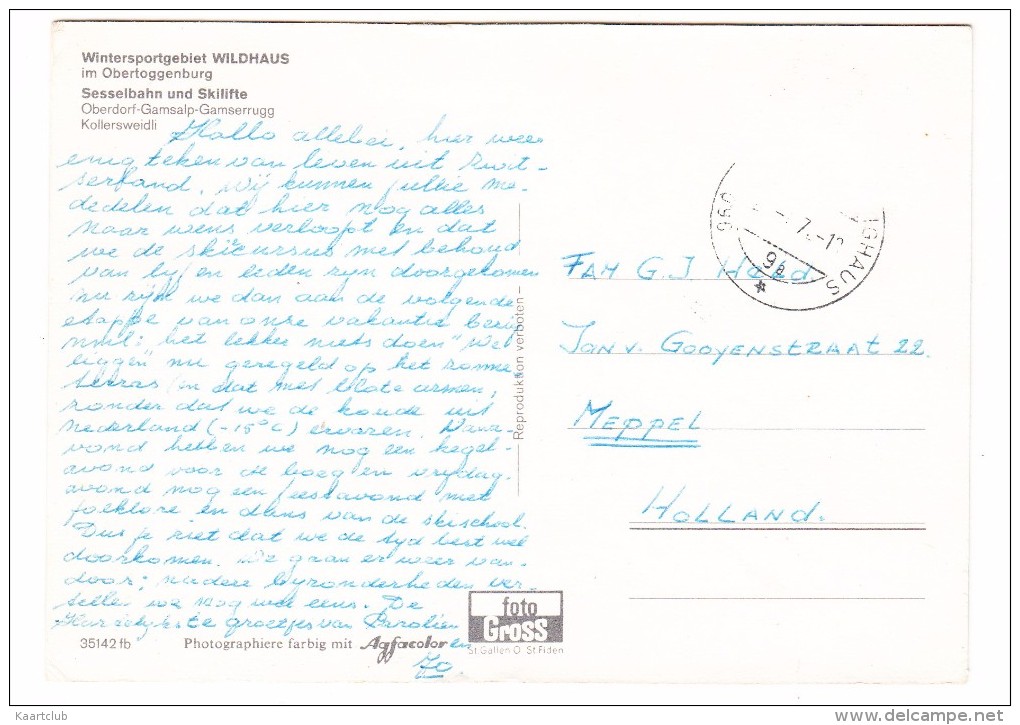 Wintersportgebiet WILDHAUS
im Obertoggenburg
Sesselbahn und Skilifte
Oberdorf-Gamsalp-Gamserrugg
Kollersweidli
Hallo allebei, hier weer
enig teken van leven uit Zwit-
serland. Wij kunnen jullie me-
dedelen dat hier nog alles
naar wens verloopt en dat
we de skicursus met behoud
van lijf en leden zijn doorgekomen
nu zijn we dan aan de volgende
etappe van onze vakantie bezig
nml: het lekker niets doen" We
liggen nu geregeld op het zonne
terras (en dat met blote armen,
zonder dat we de koude uit
Nederland (-15°C) ervaren.
avond hebben we nog een kegel-
avond voor de boeg en vrijdag-
avond nog een feestavond met
folklore en dans van de skischool.
Dus je ziet dat we de tijd best wel
doorkomen. We gaan er weer van-
door; nadere bijzonderheden ver-
tellen we nog wel eens. De
Hartelijkste groetjes van
en
Jo
35142 fb
Photographiere farbig mit Agfacolor
foto
Gross
St.Gallen O St.Fiden
Reproduktion verboten
FAM G.J HELD
JAN V. GOOYENSTRAAT 22.
MEPPEL
HOLLAND.
IGHAUS
9b
Kaartclub
www.delcampe.net